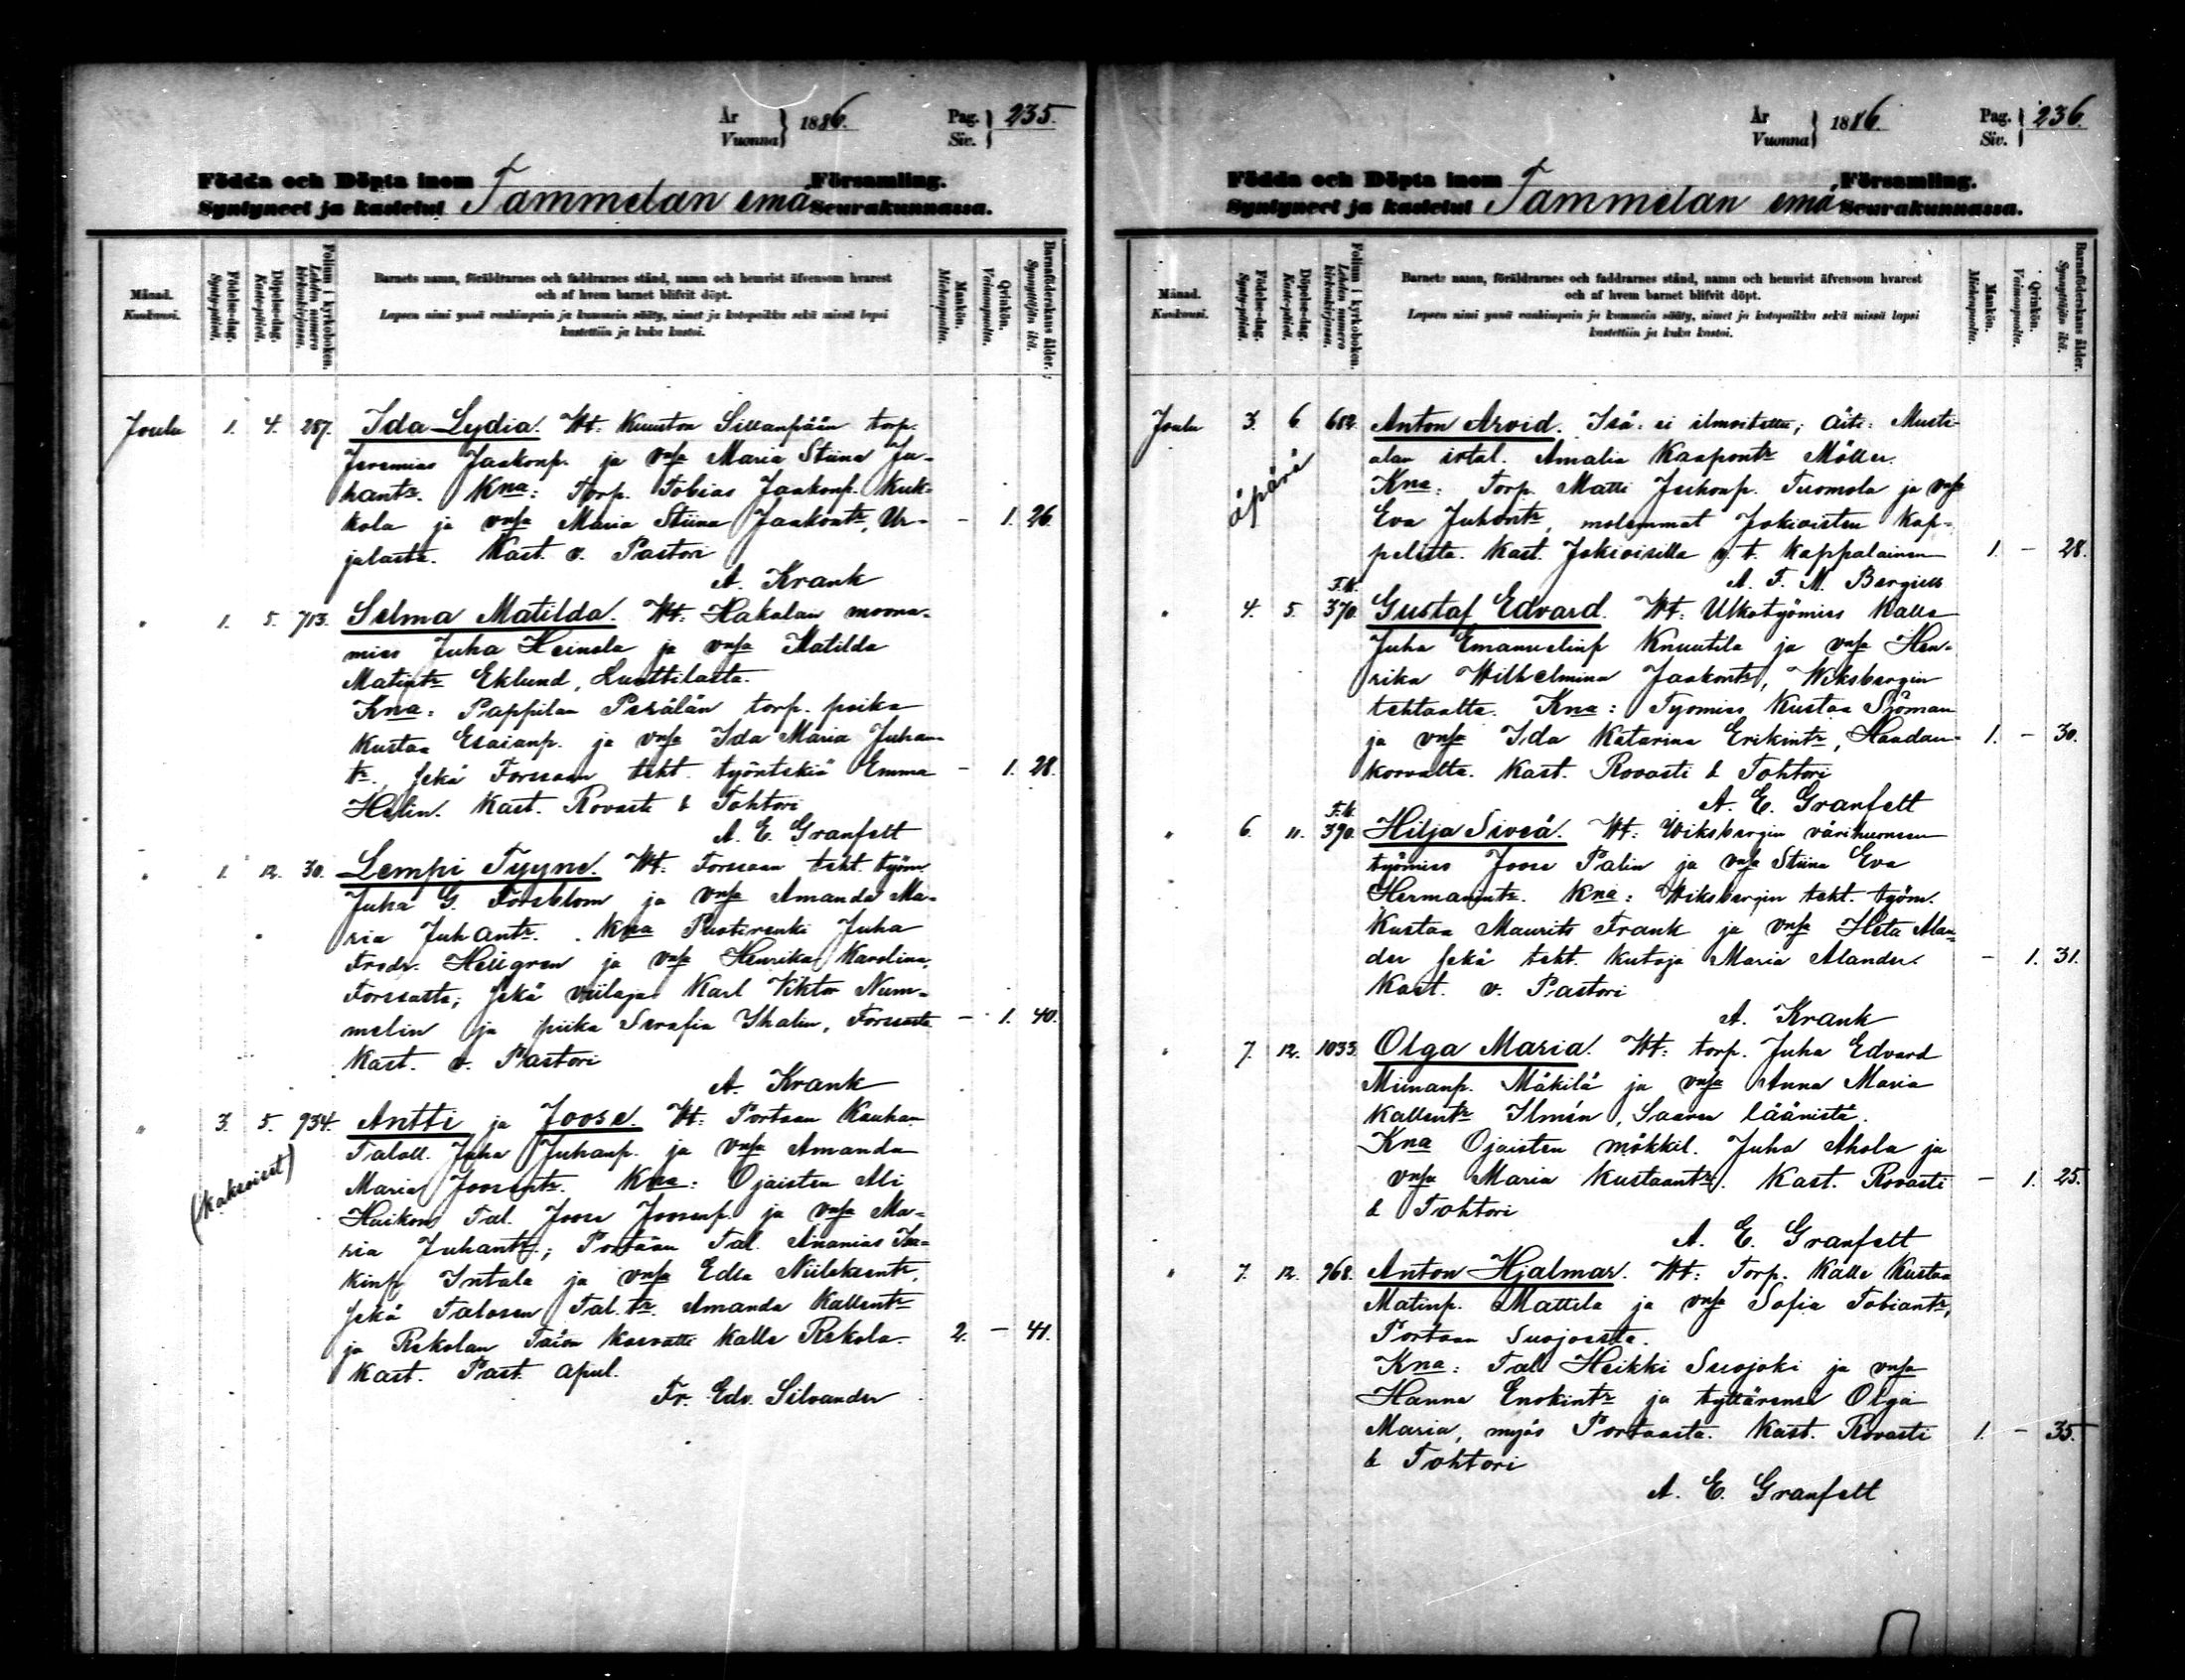 År
Vuonna } 1886.
Pag.
Siv. } 235.
Födda och Döpta inom Församling.
Syntyneet ja kastetut Tammelan emä Seurakunnassa.
Månad.
Kuukausi.
Födelse-dag.
Synty-päivä.
Döpelse-dag.
Kaste-päivä.
Folium i kyrkoboken.
Lehden numero
kirkonkirjassa.
Barnets namn, föräldrarnes och faddrarnes stånd, namn och hemvist äfvensom hvarest
och af hvem barnet blifvit döpt.
Lapsen nimi ynnä vanhimpain ja kummein sääty, nimet ja kotopaikka sekä missä lapsi
kastettiin ja kuka kastoi.
Mankön.
Miehenpuolta.
Qvinkön.
Vaimonpuolta.
Barnaföderskans ålder.
Synnyttäjän ikä.
Joulu 1. 4. 287. Ida Lydia. Wt: Kuuston Sillanpään torp.
Jeremias Jaakonp. ja vmsa Maria Stiina Ju-
hantr. Kna: Torp. Tobias Jaakonp. Kuk-
kola ja vmsa Maria Stiina Jaakontr, Ur- – 1. 26.
jalasta. Kast. v. Pastori
A. Krank
" 1. 5. 713. Selma Matilda. Wt: Hakalan moona-
mies Juha Heinola ja vmsa Matilda
Matintr Eklund, Lunttilasta.
Kna: Pappilan Perälän torp. poika
Kustaa Esaianp. ja vmsa Ida Maria Juhan-
tr. sekä Forssan teht. työntekiä Emma – 1. 28.
Helin. Kast. Rovasti & Tohtori
A. E. Granfelt
" 1. 12. 30. Lempi Tyyne. Wt: Forssan teht. työm.
Juha G. Forsblom ja vmsa Amanda Ma-
ria Juhantr. Kna Puotirenki Juha
Fredr. Hellgren ja vmsa Henrika Karolina,
Forssasta, sekä viilaja Karl Viktor Num-
melin ja piika Serafia Ihalin, Forssasta – 1. 40.
Kast. v. Pastori
A. Krank
" 3. 5. 934. Antti ja Joose. Wt: Portaan Kauhan
(kaksoiset)
Taloll. Juha Juhanp. ja vmsa Amanda
Maria Joosentr. Kna: Ojaisten Ali
Haikon Tal. Joose Joosenp. ja vmsa Ma-
ria Juhantr; Portaan Tal. Ananias Isa-
kinp Intala ja vmsa Edla Niileksentr,
sekä Talosen Tal. tr. Amanda Kallentr
ja Rekolan Talon Kasvatti Kalle Rekola. 2. – 41.
Kast. Past. apul.
Fr. Edv. Silvander
År
Vuonna } 1886.
Pag.
Siv. } 236.
Födda och Döpta inom Församling.
Syntyneet ja kastetut Tammelan emä Seurakunnassa.
Månad.
Kuukausi.
Födelse-dag.
Synty-päivä.
Döpelse-dag.
Kaste-päivä.
Folium i kyrkoboken.
Lehden numero
kirkonkirjassa.
Barnets namn, föräldrarnes och faddrarnes stånd, namn och hemvist äfvensom hvarest
och af hvem barnet blifvit döpt.
Lapsen nimi ynnä vanhimpain ja kummein sääty, nimet ja kotopaikka sekä missä lapsi
kastettiin ja kuka kastoi.
Mankön.
Miehenpuolta.
Qvinkön.
Vaimonpuolta.
Barnaföderskans ålder.
Synnyttäjän ikä.
Joulu 3. 6. 682. Anton Arvid. Isä: ei ilmoitettu; Äiti: Musti-
äpärä
alan irtal. Amalia Kaapontr Möller.
Kna: Torp. Matti Juhonp. Tuomola ja vmsa
Eva Juhontr, molemmat Jokioisten Kap-
pelista. Kast. Jokioisilla v. t. Kappalainen 1. – 28.
A. F. M. Bergius
" 4. 5. T.K. 370. Gustaf Edvard. Wt: Ulkotyömies Kalle
Juha Emanuelinp Knuutila ja vmsa Hen-
rika Wilhelmina Jaakontr, Wiksbergin
tehtaalta. Kna: Työmies Kustaa Sjöman
ja vmsa Ida Katarina Erikintr, Haudan- 1. – 30.
korvalta. Kast. Rovasti & Tohtori
A. E. Granfelt
" 6. 11. T.K. 390. Hilja Siveä. Wt: Wiksbergin värihuoneen
työmies Joose Palin ja vmsa Stiina Eva
Hermanintr. Kna: Wiksbergin teht. työm.
Kustaa Maurits Frank ja vmsa Heta Alan-
der sekä teht. kutoja Maria Alander. – 1. 31.
Kast. v. Pastori
A. Krank
" 7. 12. 1033. Olga Maria. Wt: torp. Juha Edvard
Miinanp. Mäkilä ja vmsa Anna Maria
Kallentr Ilmén, Saaren läänistä.
Kna Ojaisten mökkil. Juha Ahola ja
vmsa Maria Kustaantr. Kast. Rovasti – 1. 25.
& Tohtori
A. E. Granfelt
" 7. 12. 968. Anton Hjalmar. Wt: Torp. Kalle Kustaa
Matinp. Mattila ja vmsa Sofia Tobiantr,
Portaan Suojoesta.
Kna: Tal Heikki Suojoki ja vmsa
Hanna Enokintr ja tyttärensä Olga
Maria, myös Portaasta. Kast. Rovasti 1. – 35.
& Tohtori
A. E. Granfelt